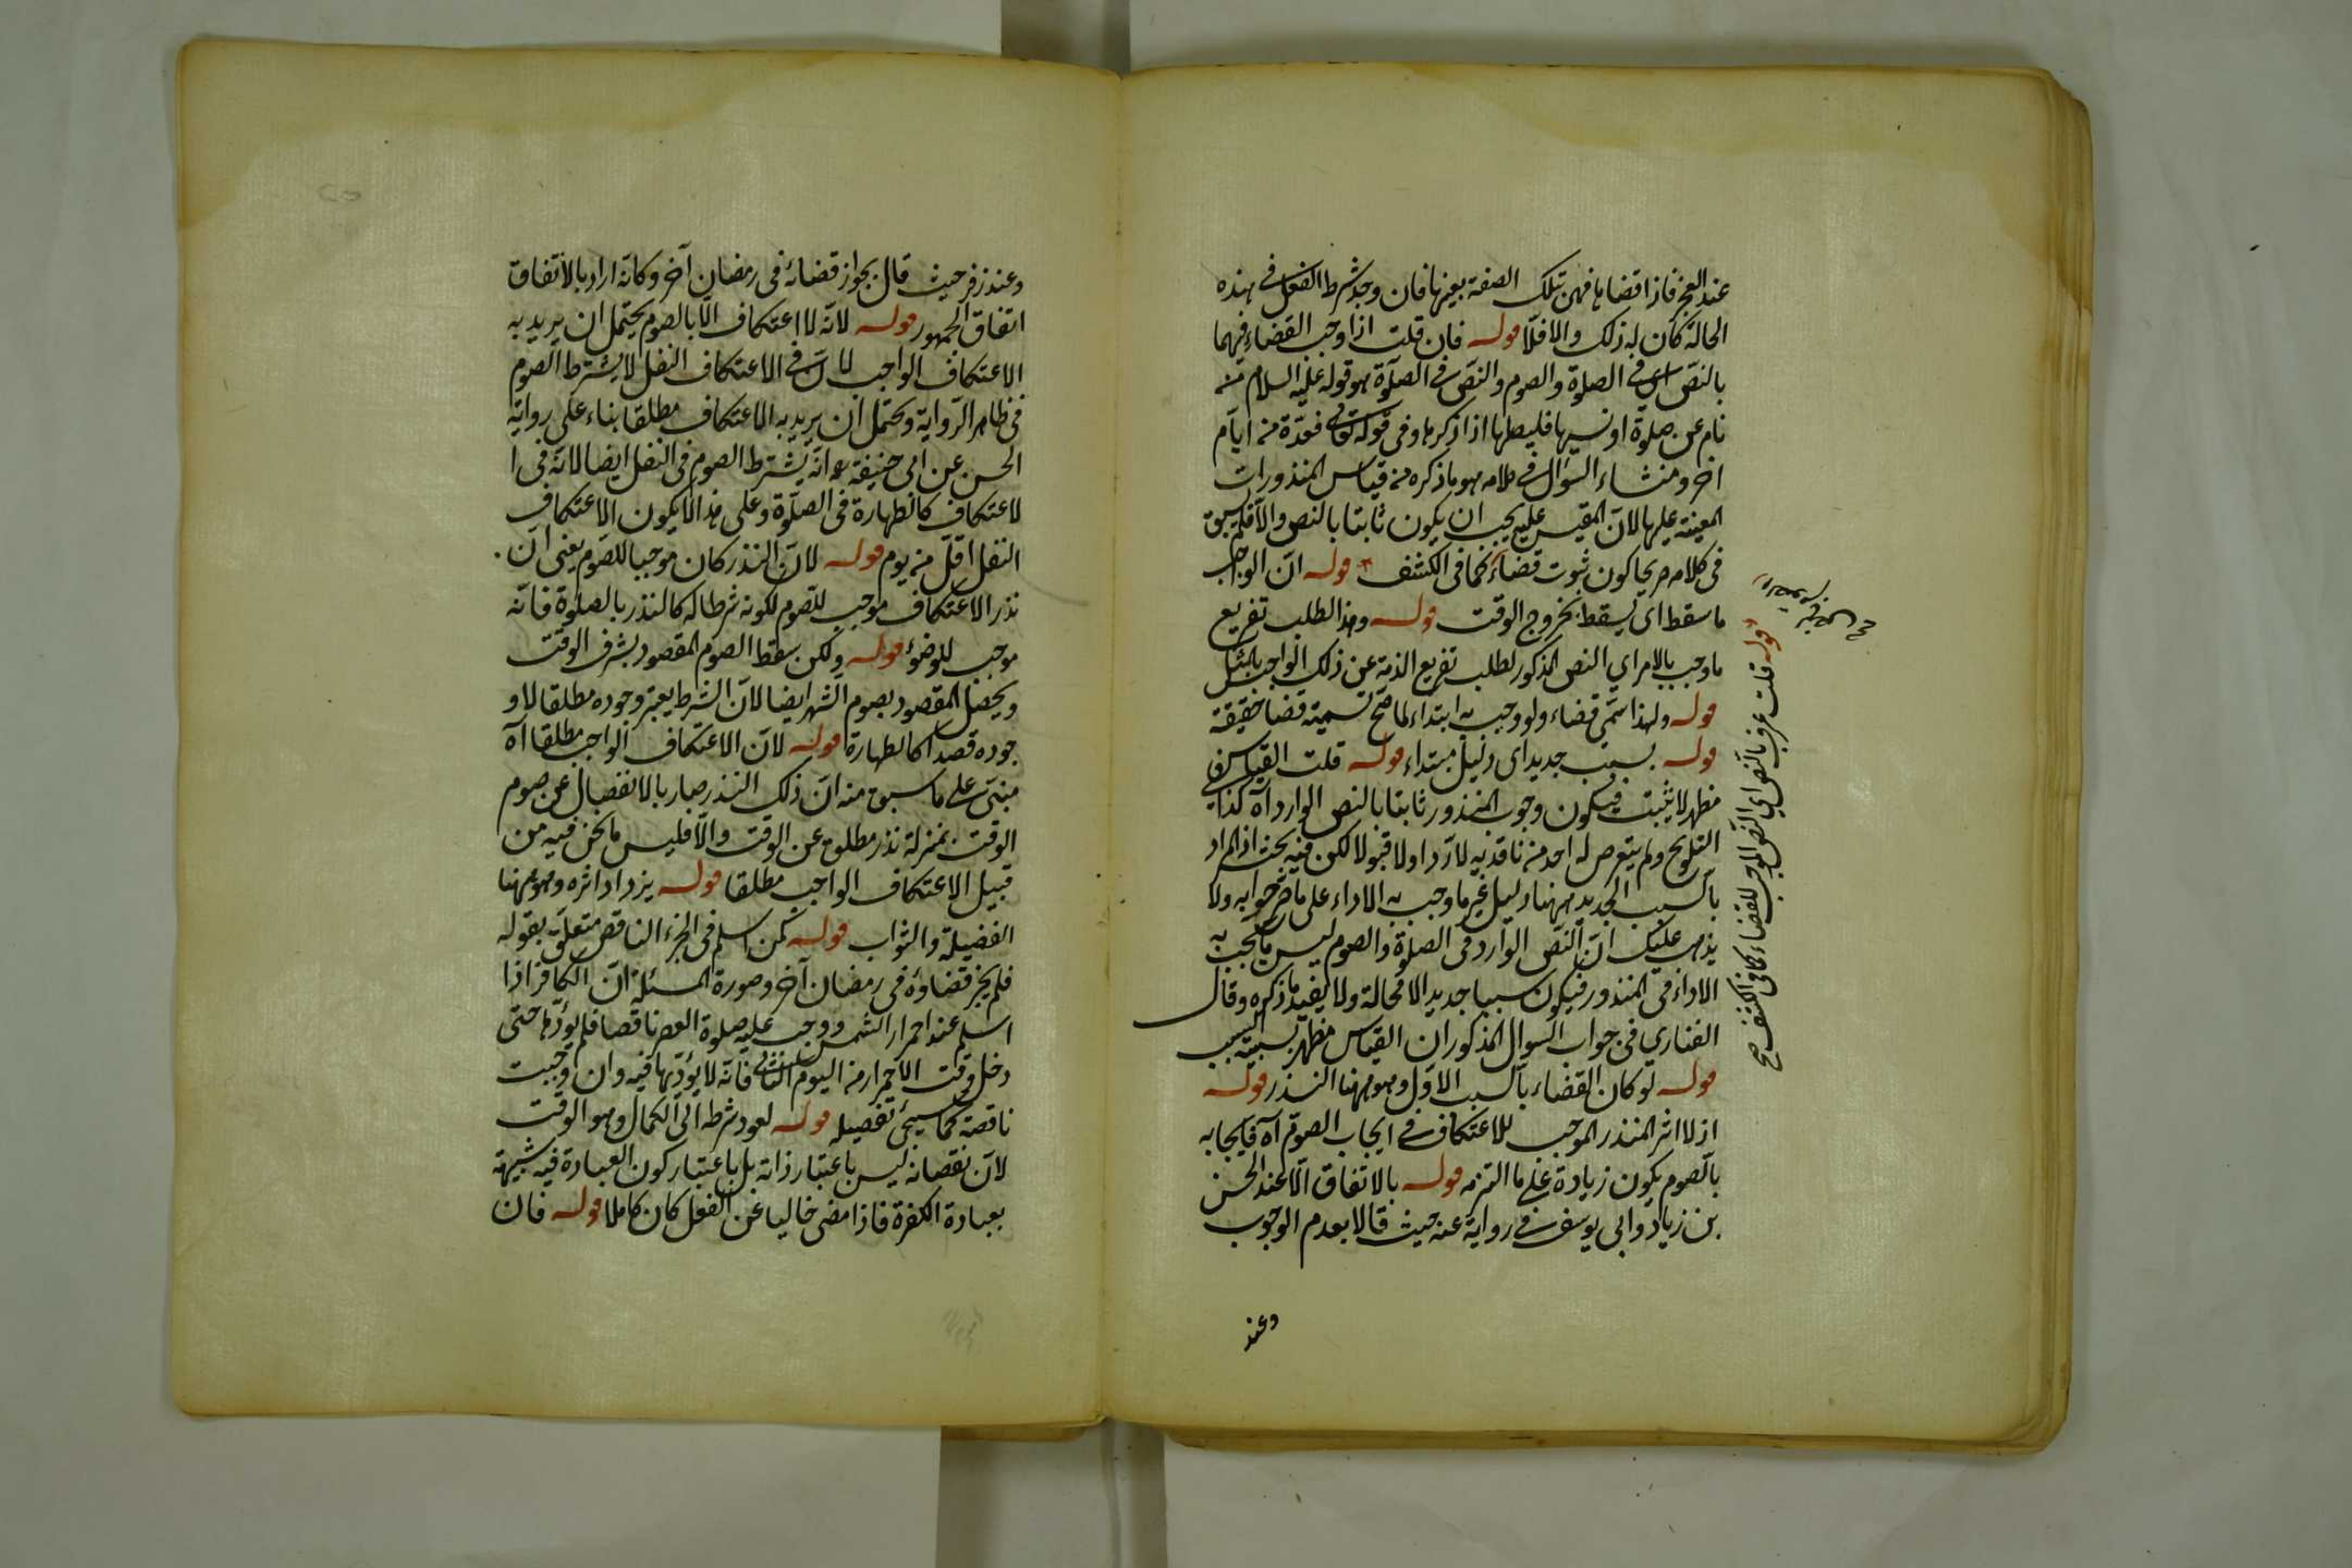 عند العجز فاذا قضاها فهى تلك الصفة بعينها فان وجد شرط الفعل فى هذه
الحالة كان له ذلك والا فلا قوله فان قلت اذا وجب القضاء فيهما
بالنص اى فى الصلوة والصوم والنص فى الصلوة هو قوله عليه السلام من
نام عن صلوة او نسيها فليصلها اذا ذكرها وفى قوله تعالى فعدة من ايام
اخر ومنشاء السؤال فى كلامه هو ما ذكره من قياس المنذورات
المعينة عليها لان المقيس عليه يجب ان يكون ثابتا بالنص والا فلم يسبق
فى كلامه صريحا كون ثبوت قضاء كما فى الكشف قوله ان الواجب
ما سقط اى لم يسقط بخروج الوقت قوله وهذا لطلب تفريع
ما وجب بالامر اي النص المذكور لطلب تفريع الذمة عن ذلك الواجب بالمثل
قوله ولهذا سمّى قضاء ولو وجب به ابتداء لما صح تسميته قضا حقيقة
قوله بسبب جديد اى دليل مبتداء قوله قلت القياس
مظهر لا مثبت فيكون وجوب المنذور ثابتا بالنص الوارد آه كذا فى
التلويح ولم يتعرض له احد من ناقديه لا ردا ولا قبولا لكن فيه بحث اذ المراد
بالسبب الجديد ههنا دليل غير ما وجب به الاداء على ما صرحوا به ولا
يذهب عليك ان النص الوارد فى الصلوة والصوم ليس ما يجب به
الاداء فى المنذور فيكون سببا جديدا لا محالة ولا يفيد ما ذكره وقال
الفناري فى جواب السوال المذكور ان القياس مظهر لسببية السبب
قوله لو كان القضاء بالسبب الاول وهو ههنا النذر قوله
اذ لا اثر للنذر الموجب للاعتكاف فى ايجاب الصوم آه فايجابه
بالصوم يكون زيادة على ما التزمه قوله بالاتفاق الا عند الحسن
بن زياد وابى يوسف فى رواية عنه حيث قالا بعدم الوجوب
وعند
قوله قلت عرف بالنص اي النص الموجب للقضاء كما فى الكشف صح
وعند زفر حيث قال بجواز قضائه فى رمضان آخر وكانه اراد بالاتفاق
اتفاق الجمهور قوله لانه لا اعتكاف الا بالصوم يحتمل ان يريد به
الاعتكاف الواجب لان فى الاعتكاف النفل لا يشترط الصوم
فى ظاهر الرواية ويحتمل ان يريد به الاعتكاف مطلقا بناء على رواية
الحسن عن ابى حنيفة انه يشترط الصوم فى النفل ايضا لانه فى ا
لاعتكاف كالطهارة فى الصلوة وعلى هذا لا يكون الاعتكاف
النفل اقل من يوم قوله لان النذر كان موجبا للصوم يعنى ان
نذر الاعتكاف موجب للصوم لكونه شرطا له كالنذر بالصلوة فانه
موجب للوضؤ قوله ولكن سقط الصوم المقصود بشرف الوقت
ويحصل المقصود بصوم الشهر ايضا لان الشرط يعتبر وجوده مطلقا لا و
جوده قصدا كالطهارة قوله لان الاعتكاف الواجب مطلقا آه
مبنى على ما سبق منه ان ذلك النذر صار بالانفصال عن صوم
الوقت بمنزلة نذر مطلق عن الوقت والا فليس ما نحن فيه من
قبيل الاعتكاف الواجب مطلقا قوله يزداد اثره وهو ههنا
الفضيلة والثواب قوله كمن اسلم فى الجزء الناقص متعلق بقوله
فلم يجز قضاؤه فى رمضان آخر وصورة المسئلة ان الكافر اذا
اسلم عند احمرار الشمس ووجب عليه صلوة العصر ناقصا فلم يؤدها حتى
دخل وقت الاحمرار من اليوم الثانى فانه لا يؤديها فيه وان وجبت
ناقصة كما سيجئ تفصيله قوله لعود شرطه الى الكمال وهو الوقت
لان نقصانه ليس باعتبار ذاته بل باعتبار كون العبادة فيه شبيهة
بعبادة الكفرة فاذا مضى خاليا عن الفعل كان كاملا قوله فان